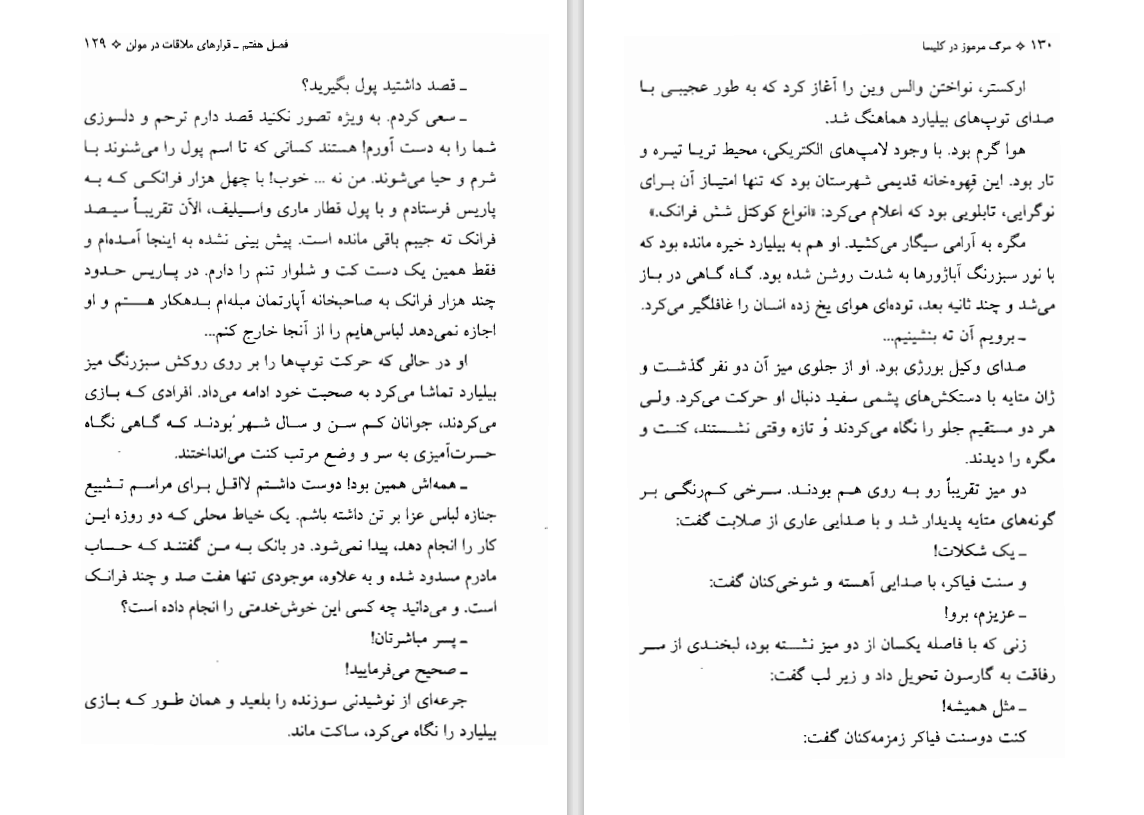 فصل هفتم ـ قرارهای ملاقات در مولن ❖ ۱۲۹
ـ قصد داشتید پول بگیرید؟
ـ سعی کردم. به ویژه تصور نکنید قصد دارم ترحم و دلسوزی
شما را به دست آورم! هستند کسانی که تا اسم پول را می‌شنوند با
شرم و حیا می‌شوند. من نه ... خوب! با چهل هزار فرانکی که به
پاریس فرستادم و با پول قطار ماری واسیلیف، الآن تقریباً سیصد
فرانک ته جیبم باقی مانده است. پیش بینی نشده به اینجا آمده‌ام و
فقط همین یک دست کت و شلوار تنم را دارم. در پاریس حدود
چند هزار فرانک به صاحبخانه آپارتمان مبله‌ام بدهکار هستم و او
اجازه نمی‌دهد لباس‌هایم را از آنجا خارج کنم...
او در حالی که حرکت توپ‌ها را بر روی روکش سبزرنگ میز
بیلیارد تماشا می‌کرد به صحبت خود ادامه می‌داد. افرادی که بازی
می‌کردند، جوانان کم سن و سال شهر بودند که گاهی نگاه
حسرت‌آمیزی به سر و وضع مرتب کنت می‌انداختند.
ـ همه‌اش همین بود! دوست داشتم لااقل برای مراسم تشییع
جنازه لباس عزا بر تن داشته باشم. یک خیاط محلی که دو روزه این
کار را انجام دهد، پیدا نمی‌شود. در بانک به من گفتند که حساب
مادرم مسدود شده و به علاوه، موجودی تنها هفت صد و چند فرانک
است. و می‌دانید چه کسی این خوش‌خدمتی را انجام داده است؟
ـ پسر مباشرتان!
ـ صحیح می‌فرمایید!
جرعه‌ای از نوشیدنی سوزنده را بلعید و همان طور که بازی
بیلیارد را نگاه می‌کرد، ساکت ماند.
۱۳۰ ❖ مرگ مرموز در کلیسا
ارکستر، نواختن والس وین را آغاز کرد که به طور عجیبی با
صدای توپ‌های بیلیارد هماهنگ شد.
هوا گرم بود. با وجود لامپ‌های الکتریکی، محیط تریا تیره و
تار بود. این قهوه‌خانه قدیمی شهرستان بود که تنها امتیاز آن برای
نوگرایی، تابلویی بود که اعلام می‌کرد: «انواع کوکتل شش فرانک.»
مگره به آرامی سیگار می‌کشید. او هم به بیلیارد خیره مانده بود که
با نور سبزرنگ آباژورها به شدت روشن شده بود. گاه گاهی در باز
می‌شد و چند ثانیه بعد، توده‌ای هوای یخ زده انسان را غافلگیر می‌کرد.
ـ برویم آن ته بنشینیم...
صدای وکیل بورژی بود. او از جلوی میز آن دو نفر گذشت و
ژان متایه با دستکش‌های پشمی سفید دنبال او حرکت می‌کرد. ولی
هر دو مستقیم جلو را نگاه می‌کردند و تازه وقتی نشستند، کنت و
مگره را دیدند.
دو میز تقریباً رو به روی هم بودند. سرخی کم‌رنگی بر
گونه‌های متایه پدیدار شد و با صدایی عاری از صلابت گفت:
ـ یک شکلات!
و سنت فیاکر، با صدایی آهسته و شوخی‌کنان گفت:
ـ عزیزم، برو!
زنی که با فاصله یکسان از دو میز نشسته بود، لبخندی از سر
رفاقت به گارسون تحویل داد و زیر لب گفت:
ـ مثل همیشه!
کنت دوسنت فیاکر زمزمه‌کنان گفت: